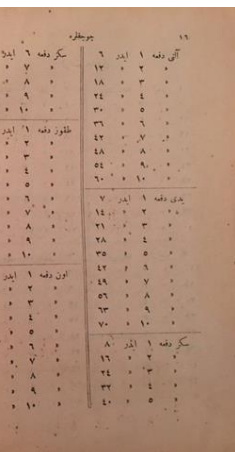 ١٦ چوجقلره
آلتی دفعه ١ ایدر ٦
» ٢ » ١٢
» ٣ » ١٨
» ٤ » ٢٤
» ٥ » ٣٠
» ٦ » ٣٦
» ٧ » ٤٢
» ٨ » ٤٨
» ٩ » ٥٤
» ١٠ » ٦٠
یدی دفعه ١ ایدر ٧
» ٢ » ١٤
» ٣ » ٢١
» ٤ » ٢٨
» ٥ » ٣٥
» ٦ » ٤٢
» ٧ » ٤٩
» ٨ » ٥٦
» ٩ » ٦٣
» ١٠ » ٧٠
سكز دفعه ١ ایدر ٨
» ٢ » ١٦
» ٣ » ٢٤
» ٤ » ٣٢
» ٥ » ٤٠
سكز دفعه ٦ ایدر
» ٧ »
» ٨ »
» ٩ »
» ١٠ »
طقوز دفعه ١ ایدر
» ٢ »
» ٣ »
» ٤ »
» ٥ »
» ٦ »
» ٧ »
» ٨ »
» ٩ »
» ١٠ »
اون دفعه ١ ایدر
» ٢ »
» ٣ »
» ٤ »
» ٥ »
» ٦ »
» ٧ »
» ٨ »
» ٩ »
» ١٠ »